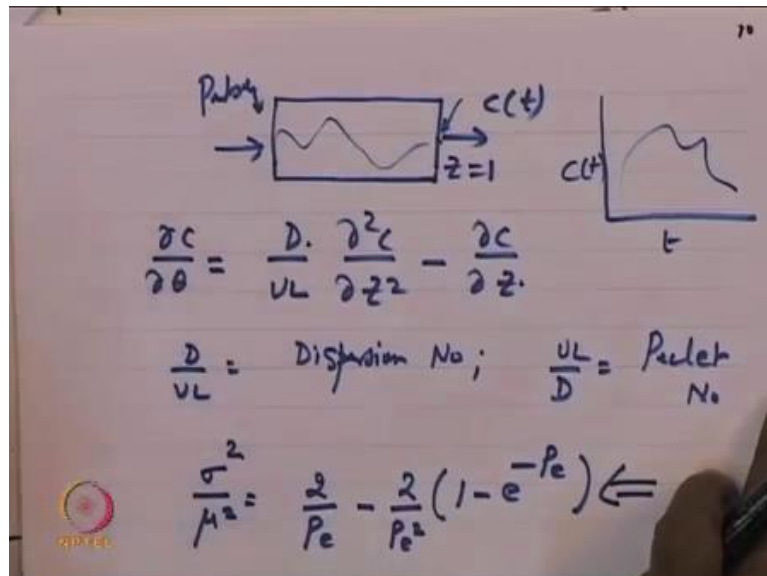 70
Pulse
C(t)
Z=1
C(t)
t
∂C/∂θ = D/UL ∂²C/∂Z² - ∂C/∂Z.
D/UL = Dispersion No; UL/D = Peclet No
σ²/μ² = 2/Pe - 2/Pe² (1 - e^-Pe) ⇐
NPTEL